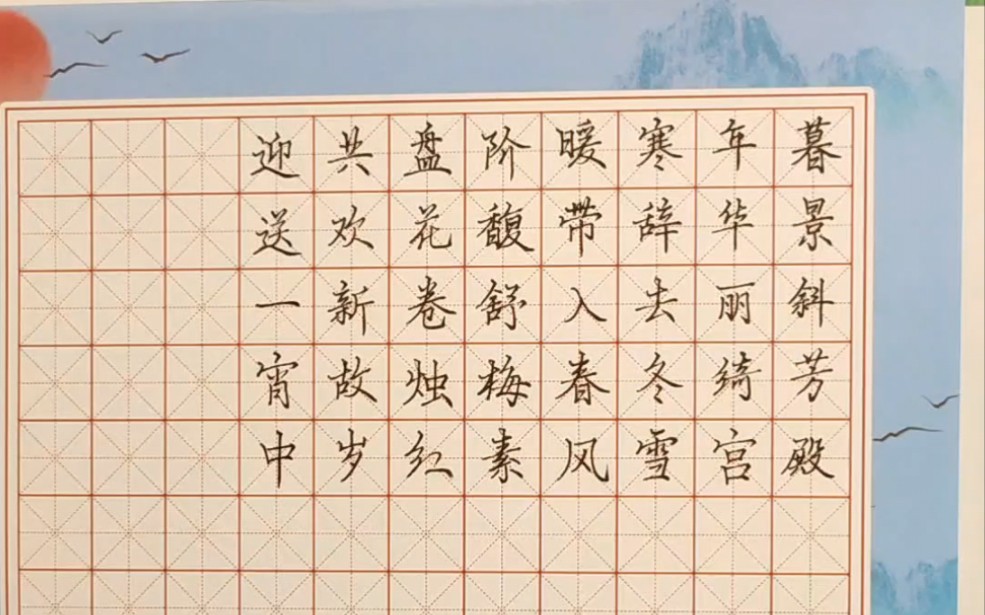 暮景斜芳殿
年华丽绮宫
寒辞去冬雪
暖带入春风
阶馥舒梅素
盘花卷烛红
共欢新故岁
迎送一宵中